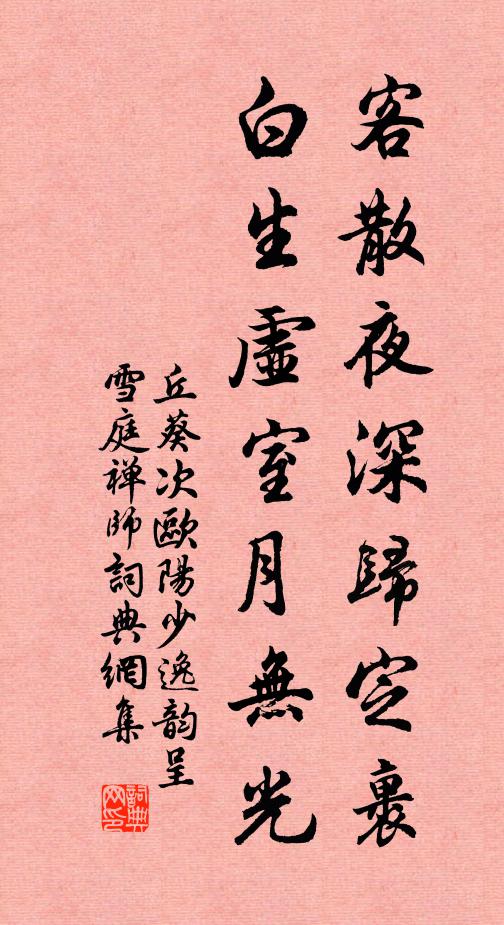 客散夜深歸定裏
白生虛室月無光
丘葵次歐陽少逸韵呈
雪庭禅師詞典網集
詞典网印